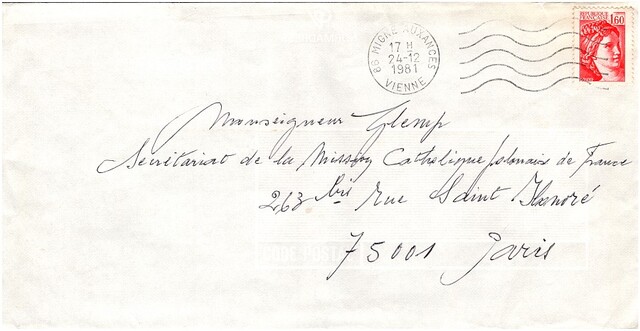 86 MIGNE AUXANCES
17 H
24-12
1981
VIENNE
1,60
Monseigneur Glemp
Secrétariat de la Mission Catholique polonaise de France
263 bis Rue Saint Honoré
75001 Paris
CODE POSTAL